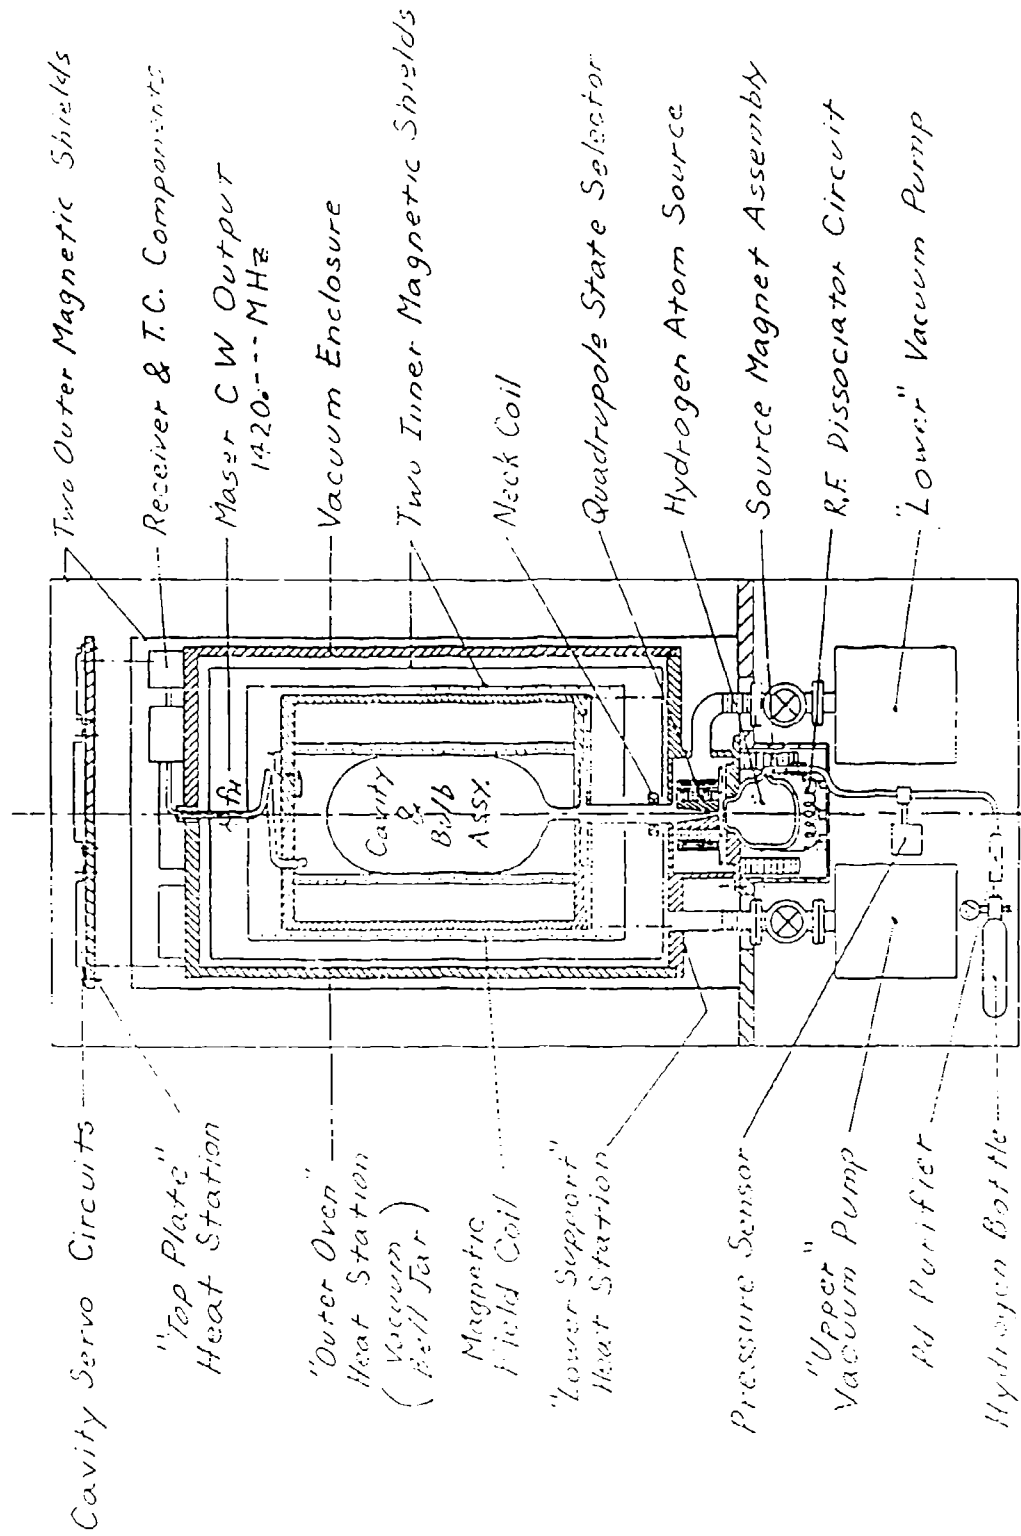 Two Outer Magnetic Shields
Receiver & T.C. Components
Maser CW Output
1420.--- MHz
Vacuum Enclosure
Two Inner Magnetic Shields
Neck Coil
Quadrupole State Selector
Hydrogen Atom Source
Source Magnet Assembly
R.F. Dissociator Circuit
"Lower" Vacuum Pump
Cavity
&
Bulb
Assy.
Cavity Servo Circuits
"Top Plate"
Heat Station
"Outer Oven"
Heat Station
(Vacuum
Bell Jar)
Magnetic
Field Coil
"Lower Support"
Heat Station
Pressure Sensor
"Upper"
Vacuum Pump
Pd Purifier
Hydrogen Bottle